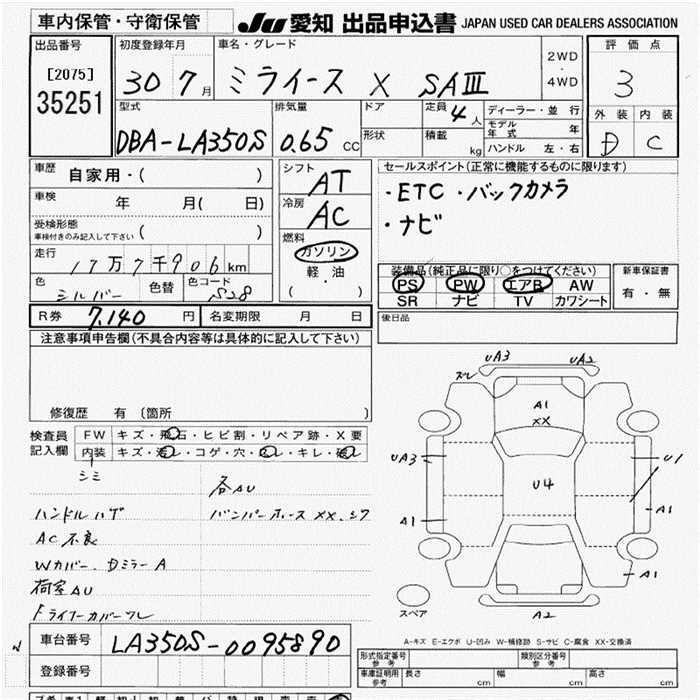 車内保管・守衛保管 JU 愛知 出品申込書 JAPAN USED CAR DEALERS ASSOCIATION
出品番号 初度登録年月 車名・グレード 評価点
[2075] 30 7月 ミライース X SAIII 2WD・4WD 3
35251
型式 排気量 ドア 定員 4人 ディーラー・並行 外装 内装
DBA-LA350S 0.65 CC 形状 積載 kg モデル年式 年 D C
ハンドル 左・右
車歴 自家用・( ) シフト AT セールスポイント(正常に機能するものに限ります)
車検 年 月( 日) 冷房 AC ・ETC ・バックカメラ
受検形態 ( ) ・ナビ
車検付きのみ記入して下さい
燃料 ガソリン
走行 17万7千906km 軽・油 装備品(純正品に限り○をつけてください) 新車保証書
色 シルバー 色替 色コード S28 ( ・ ) PS PW エアB AW 有・無
SR ナビ TV カワシート
R券 7,140円 名変期限 月 日 後日品
注意事項申告欄(不具合内容等は具体的に記入して下さい)
修復歴 有 (箇所 )
検査員記入欄 FW キズ・飛石・ヒビ割・リペア跡・X要
内装 キズ・汚レ・コゲ・穴・スレ・キレ・破レ
シミ 各AU
ハンドルハゲ
AC不良
Wカバー、Dミラー A
荷室AU
UA3 UA2
ズレ
A1
XX
UA3 U4 U1
A1 A1
A1
スペア A2
A-キズ E-エクボ U-凹み W-補修跡 S-サビ C-腐食 XX-交換済
車台番号 LA350S-0095890
登録番号
形式指定番号 参考 類別区分番号 参考
車庫証明用 参考 長さ cm 幅 cm 高さ cm